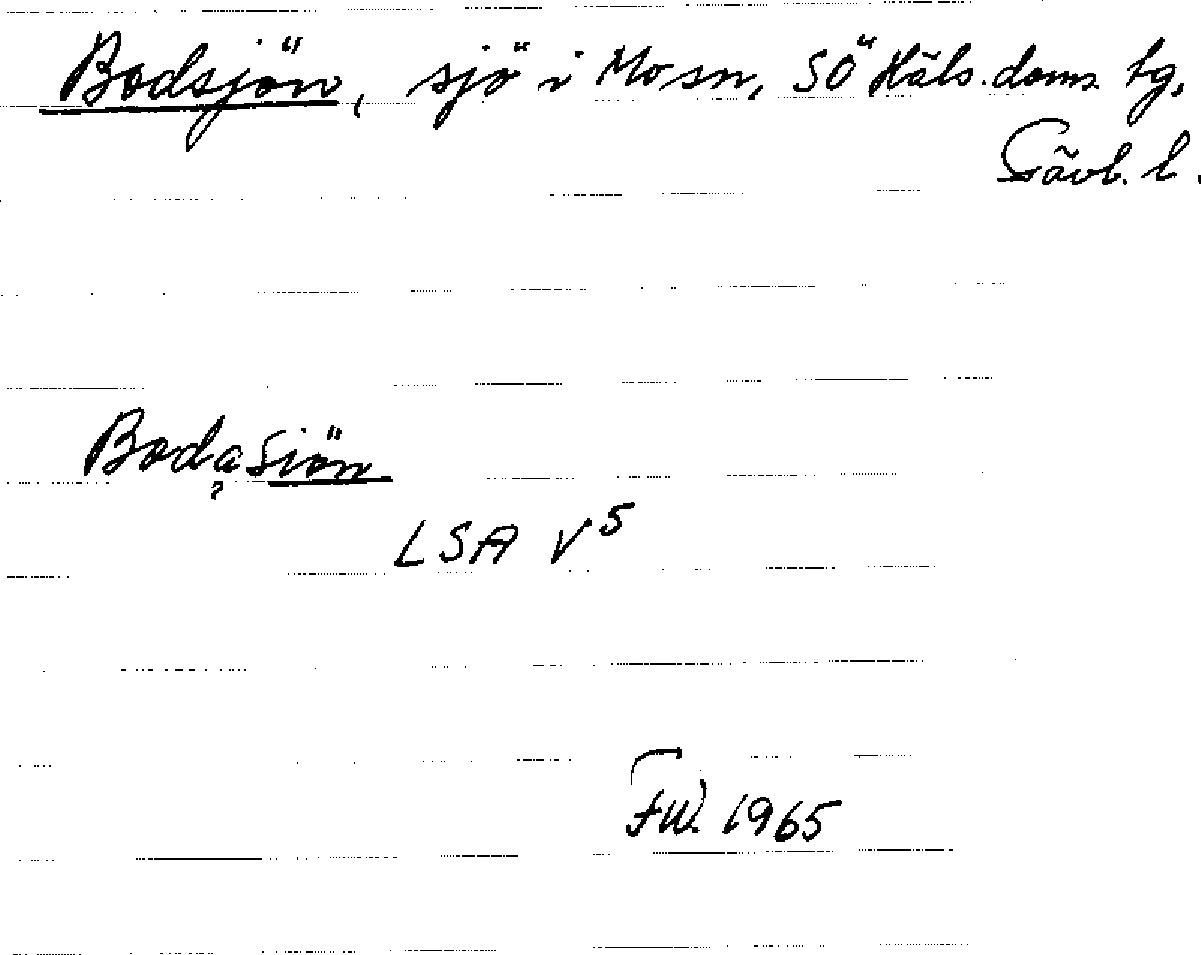 Bodsjön, sjö i Mo sn, SÖ Häls. doms. tg,
Gävl. l.
Bodasiön
?
LSA V5
F.W. 1965